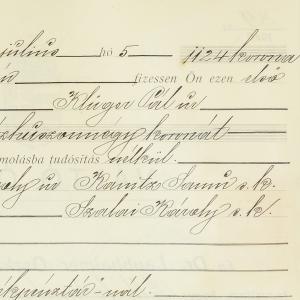 julius hó 5 1124 korona
fizessen Ön ezen első
Klüger Pál úr
huszonnégy koronát
molásba tudósítás nélkül.
úr Kánitz Samu s.k.
Szalai Károly s.k.
nál.